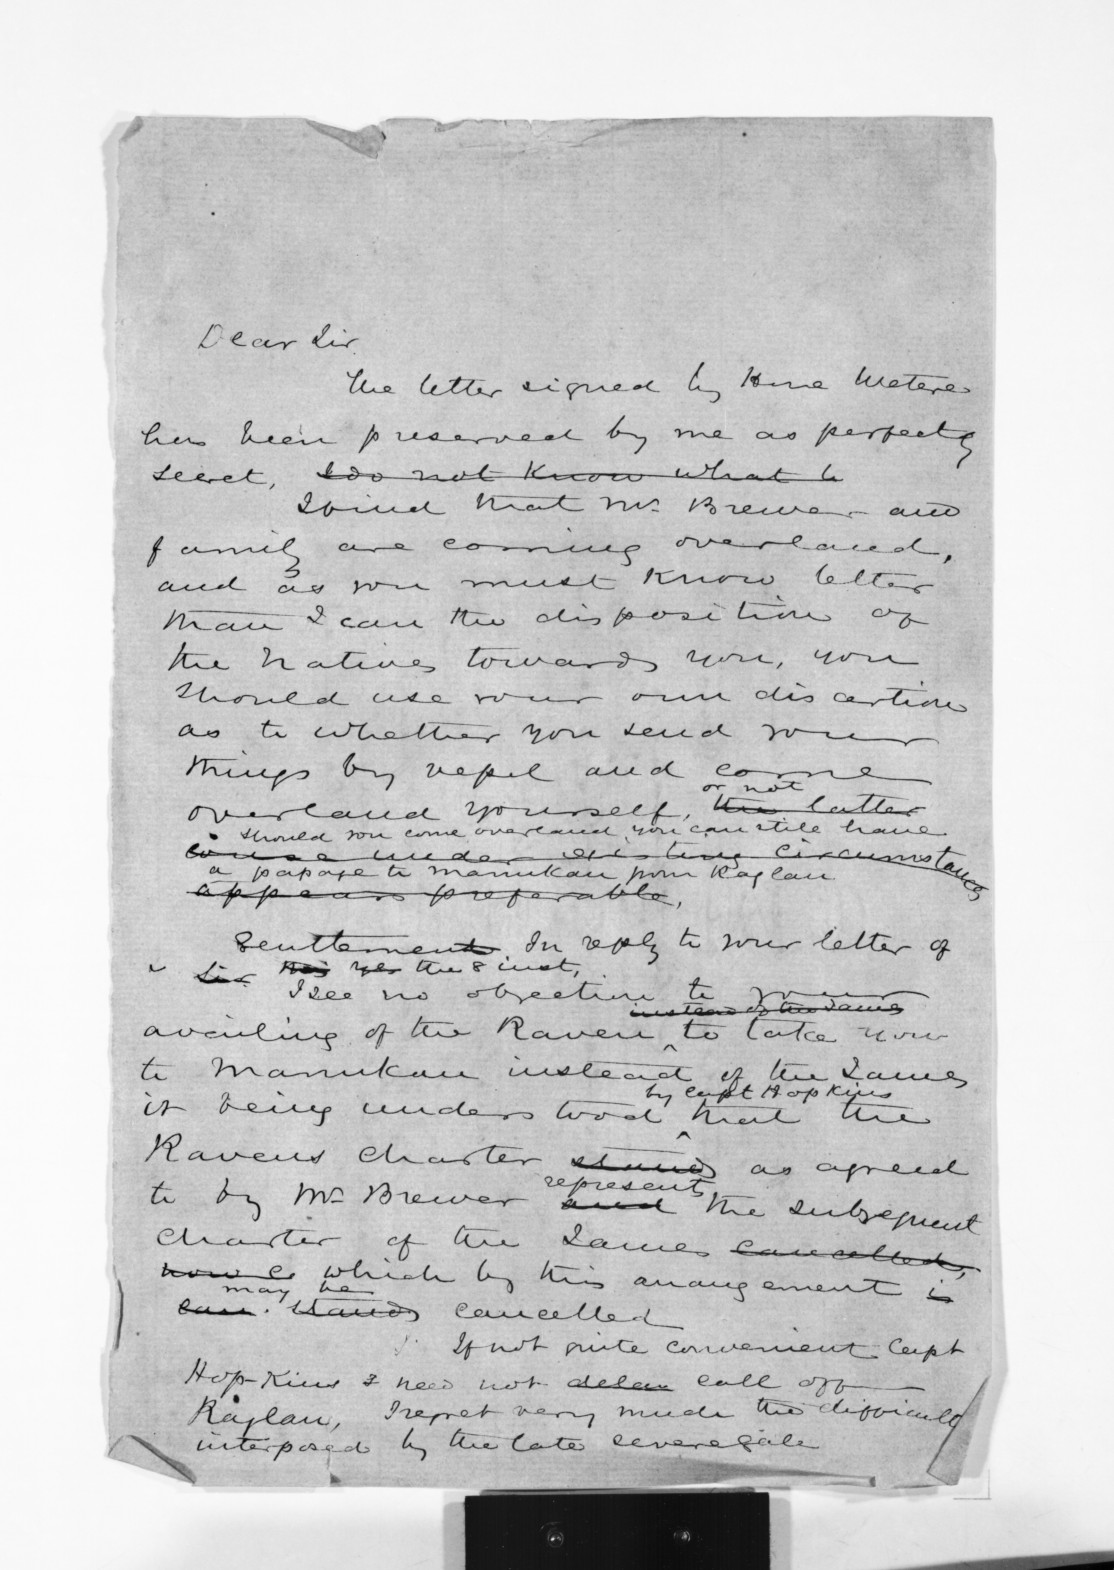 Dear Sir.
The letter signed by Hone Wetere
has been preserved by me as perfectly
secret, I do not know what to
I find that Mr Brewer and
family are coming overland,
and as you must know better
than I can the disposition of
the Natives towards you, you
should use your own discertion
as to whether you send your
things by vessel and come
or not
overland yourself, the latter
should you come overland you can still have
course under existing circumstances
a passage to Manukau from Raglan
appears preferable.
Gentlemen In reply to your letter of
Sir the 8 inst,
I see no objection to your
instead of the James
availing of the Raven to take you
to Manukau instead of the James
by Capt Hopkins
it being understood that the
Ravens charter stands as agreed
represents
to by Mr Brewer and the subsequent
charter of the James cancelled,
now which by this arrangement is
may be
can stands cancelled
If not quite convenient Capt
Hopkins need not delay call off
Raglan, I regret very much the difficulty
interposed by the late severe gale